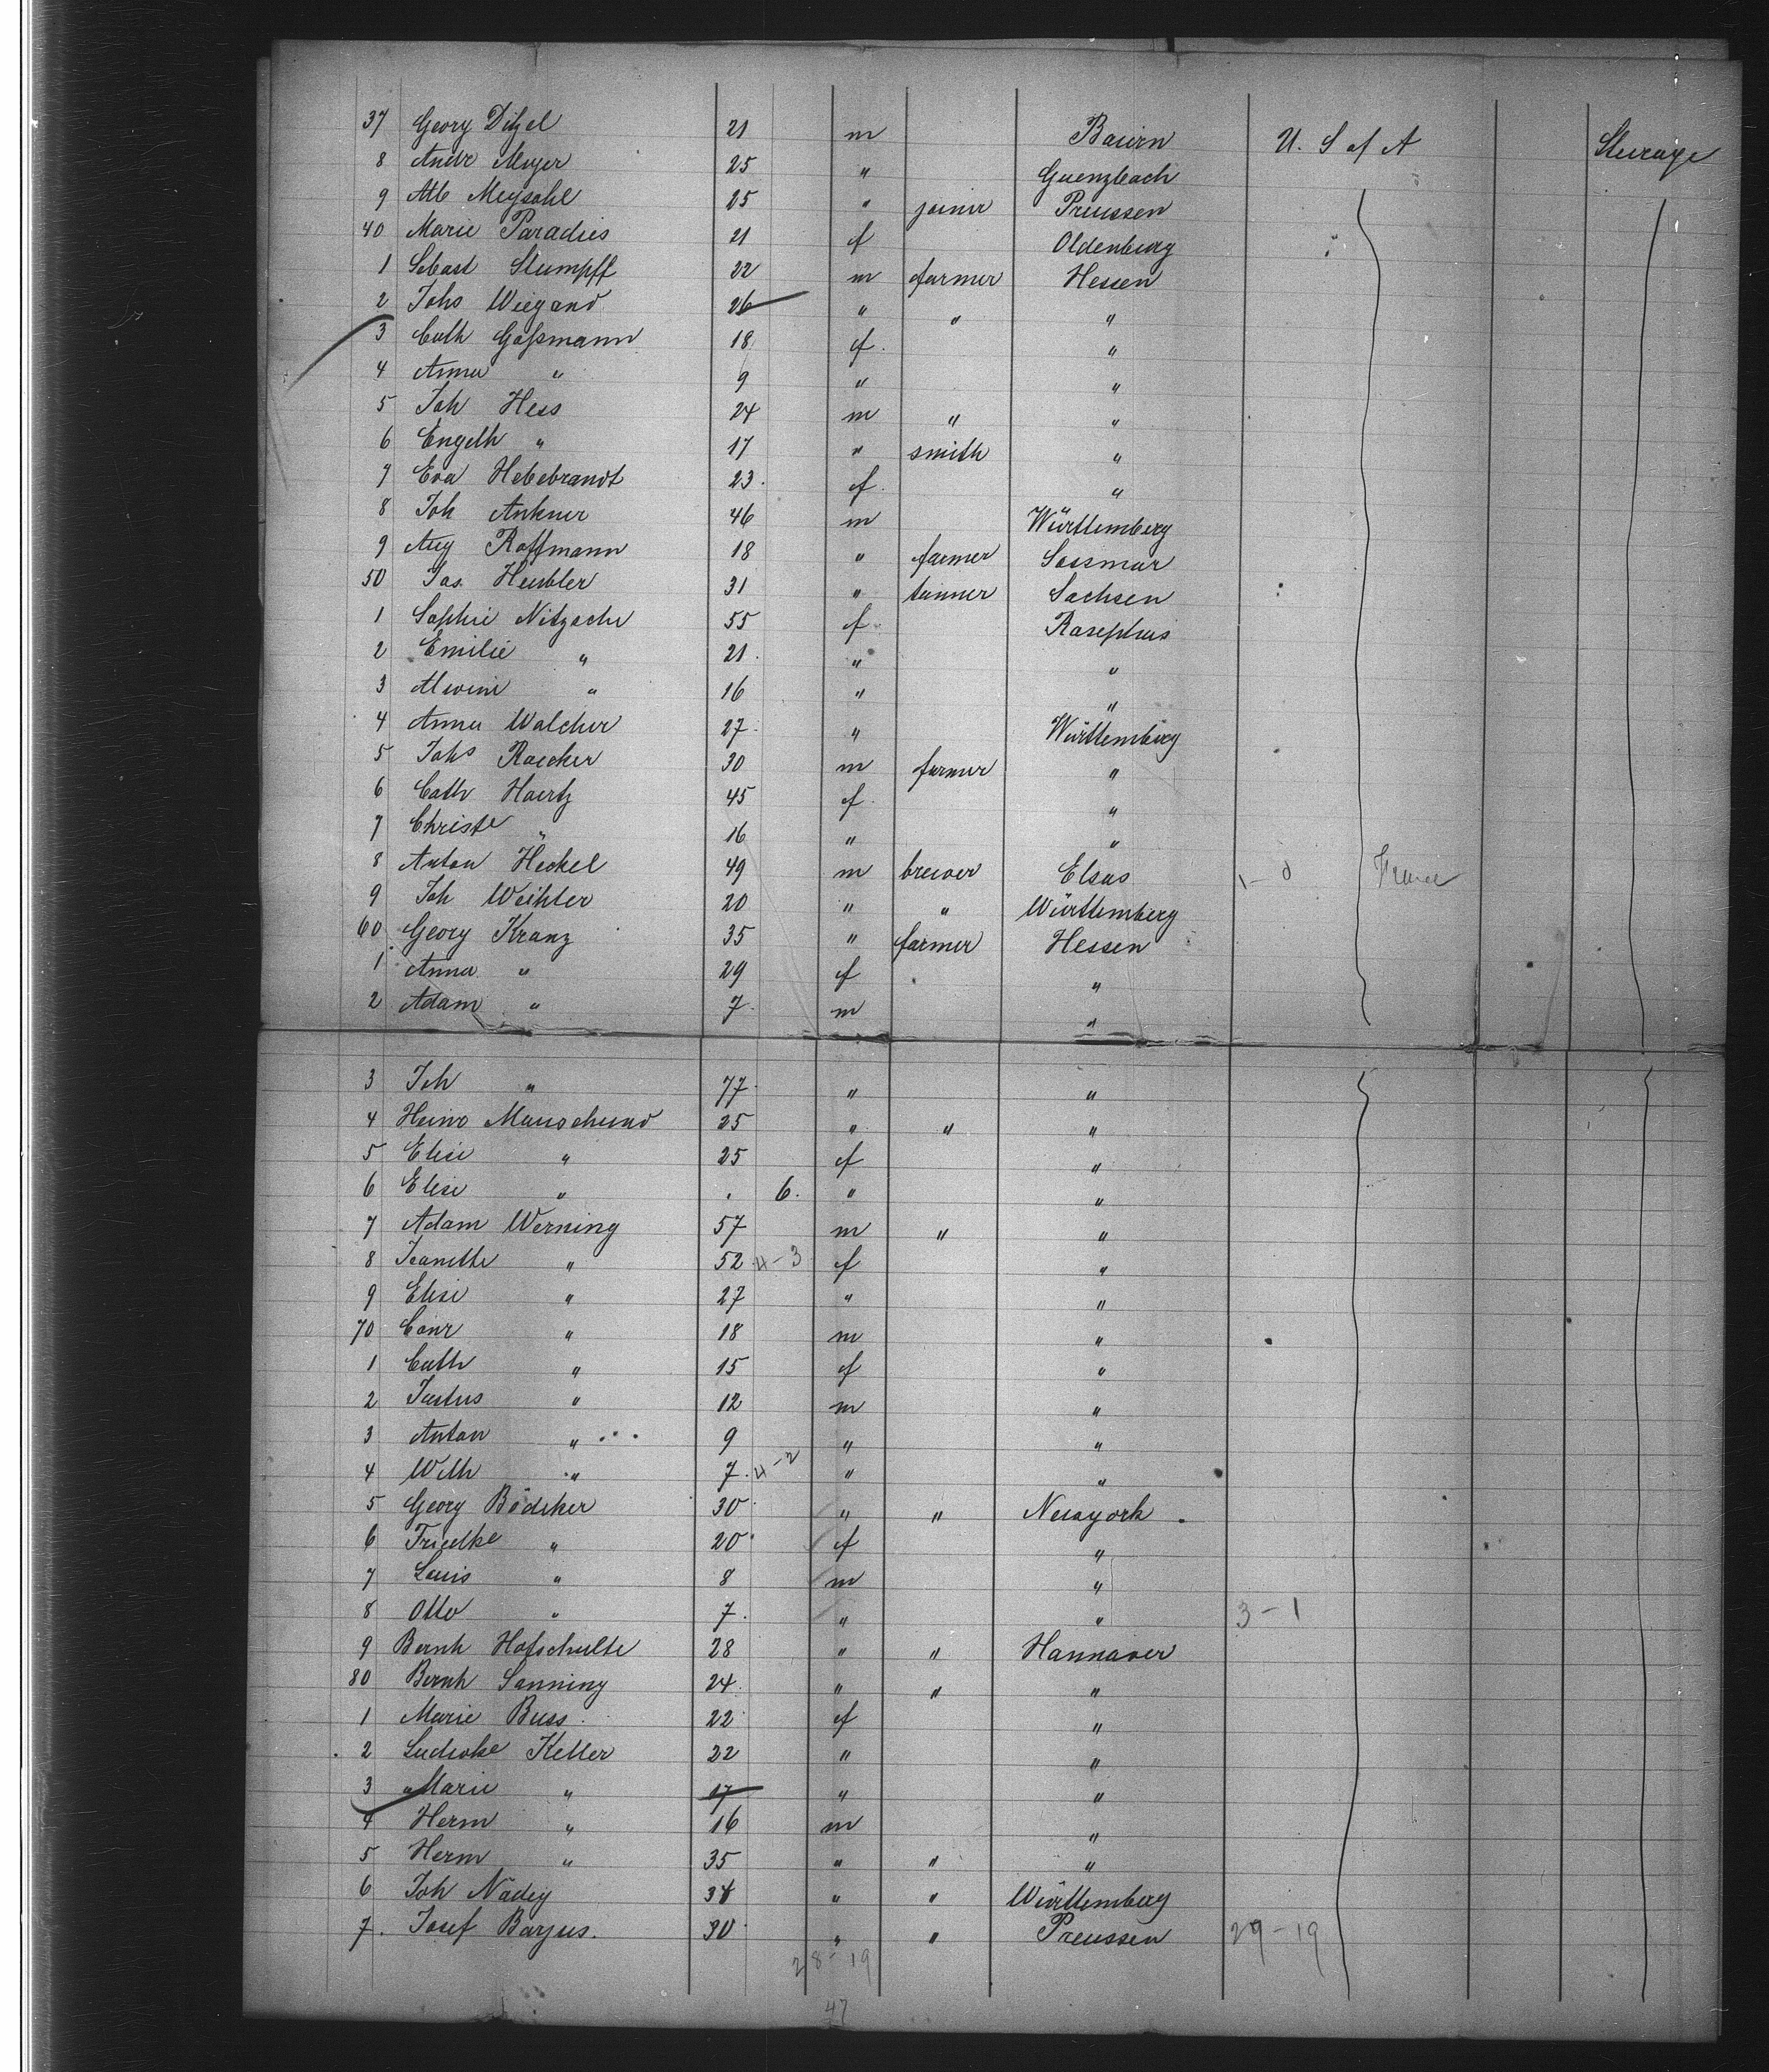 37 Georg Ditzel 21 m Baiern U. S of A Steerage
8 Andr Meyer 25 " Guenzbach
9 Alb Meysahl 25 " joiner Preussen
40 Marie Paradies 21 f Oldenburg
1 Sebast Stumpff 22 m farmer Hessen
2 Johs Wiegand 26 " " "
3 Cath Goßmann 18 f "
4 Anna " 9 " "
5 Joh Hess 24 m " "
6 Engelh " 17 " smith "
7 Eva Hebebrandt 23 f "
8 Joh Ankner 46 m Württemberg
9 Aug Roffmann 18 " farmer Sossmar
50 Jos. Heubler 31 " tanner Sachsen
1 Sophie Nitzsche 55 f Rosephus
2 Emilie " 21 " "
3 Alwine " 16 " "
4 Anna Walcher 27 " Württemberg
5 Johs Roecker 30 m farmer "
6 Cath Haertz 45 f "
7 Christe " 16 " "
8 Anton Heckel 49 m brewer Elsas 1-0 France
9 Joh Weihler 20 " " Württemberg
60 Georg Kranz 35 " farmer Hessen
1 Anna " 29 f "
2 Adam " 7 m "
3 Joh " 77 " "
4 Heinr Mauschund 25 " " "
5 Elise " 25 f "
6 Elise " . 6. " "
7 Adam Werning 57 m " "
8 Jeanette " 52 4-3 f "
9 Elise " 27 " "
70 Conr " 18 m "
1 Cath " 15 f "
2 Justus " 12 m "
3 Anton " 9 " "
4 Wilh " 7 4-2 " "
5 Georg Bödeker 30 " " Newyork
6 Friedke " 20 f "
7 Louis " 8 m "
8 Otto " 7 " " 3-1
9 Bernh Hofschulte 28 " " Hannover
80 Bernh Sanning 24 " " "
1 Marie Buss 22 f "
2 Ludwke Keller 22 " "
3 Marie " 17 " "
4 Herm " 16 m "
5 Herm " 35 " " "
6 Joh Nädig 34 " " Württemberg
7. Josef Barjus. 30 " " Preussen 29-19
28-19
47